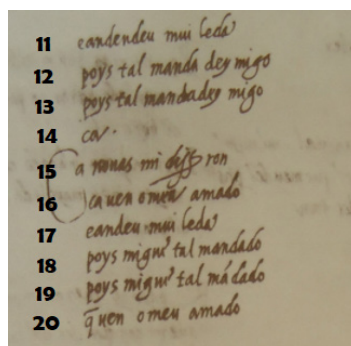 11 eandendeu mui leda
12 poys tal manda dey migo
13 poys tal mandadey migo
14 ca.
15 a nouas mi disseron
16 ca uen o meu amado
17 eandeu mui leda
18 poys migu' tal mandado
19 poys migu' tal mādado
20 q̄ uen o meu amado